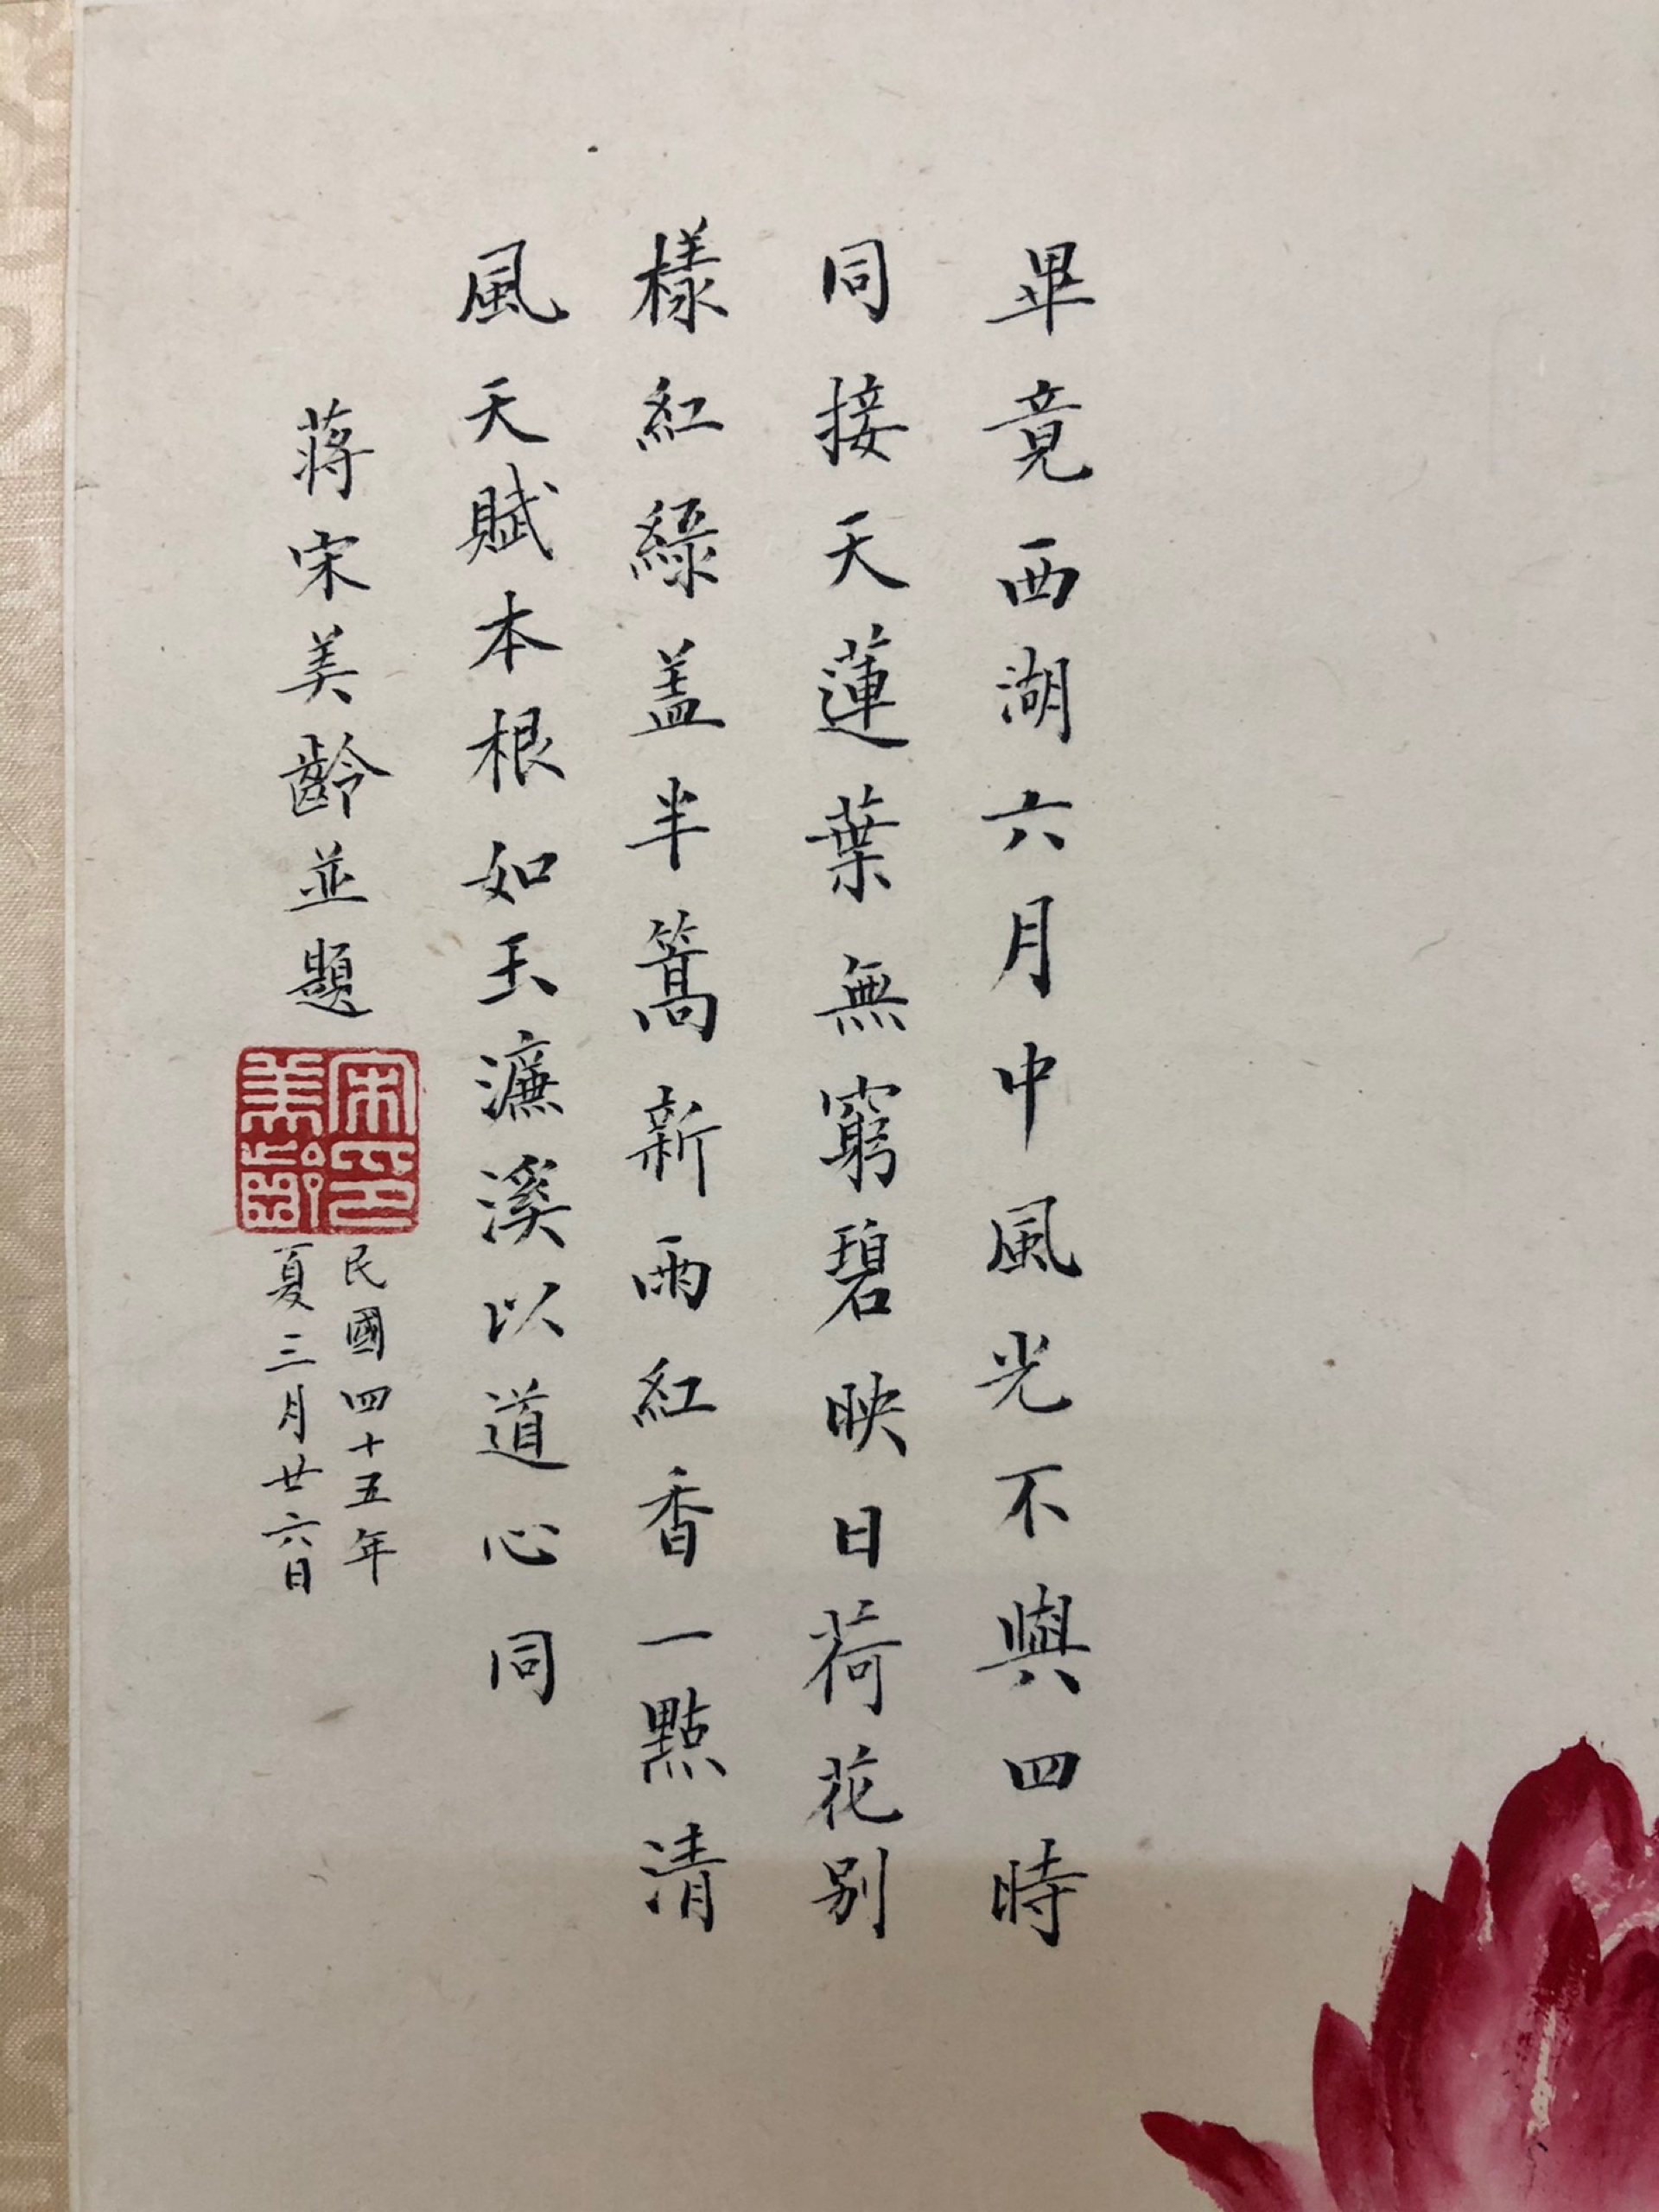 畢竟西湖六月中風光不與四時
同接天蓮葉無窮碧映日荷花別
樣紅綠盖半篙新雨紅香一點清
風天賦本根如玉濂溪以道心同
蔣宋美齡並題
宋美齡印
民國四十五年
夏三月廿六日